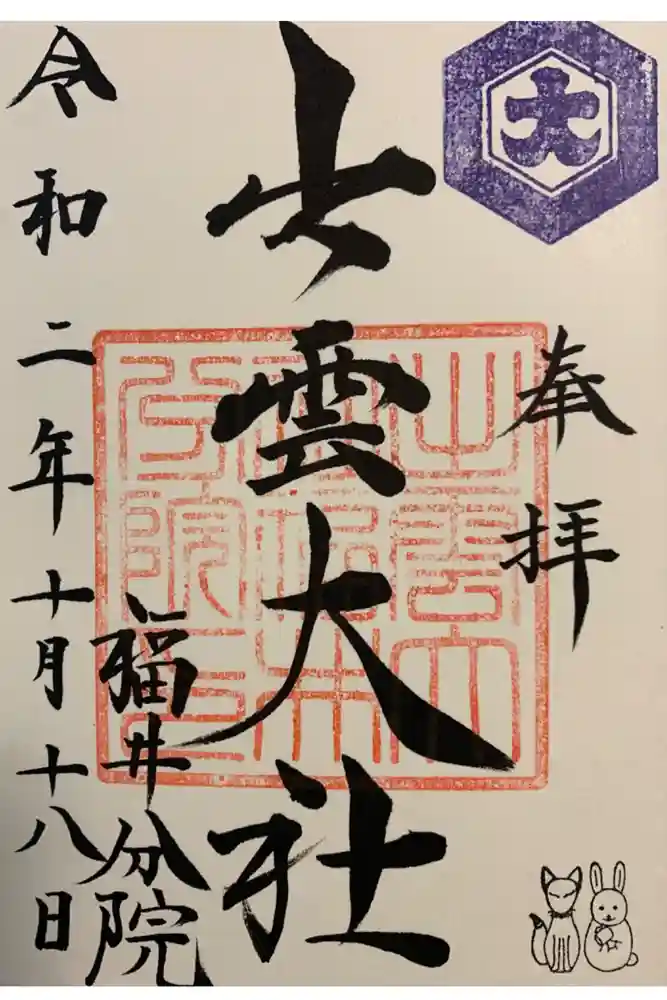 大
奉拝
出雲大社
福井分院
令和二年十月十八日